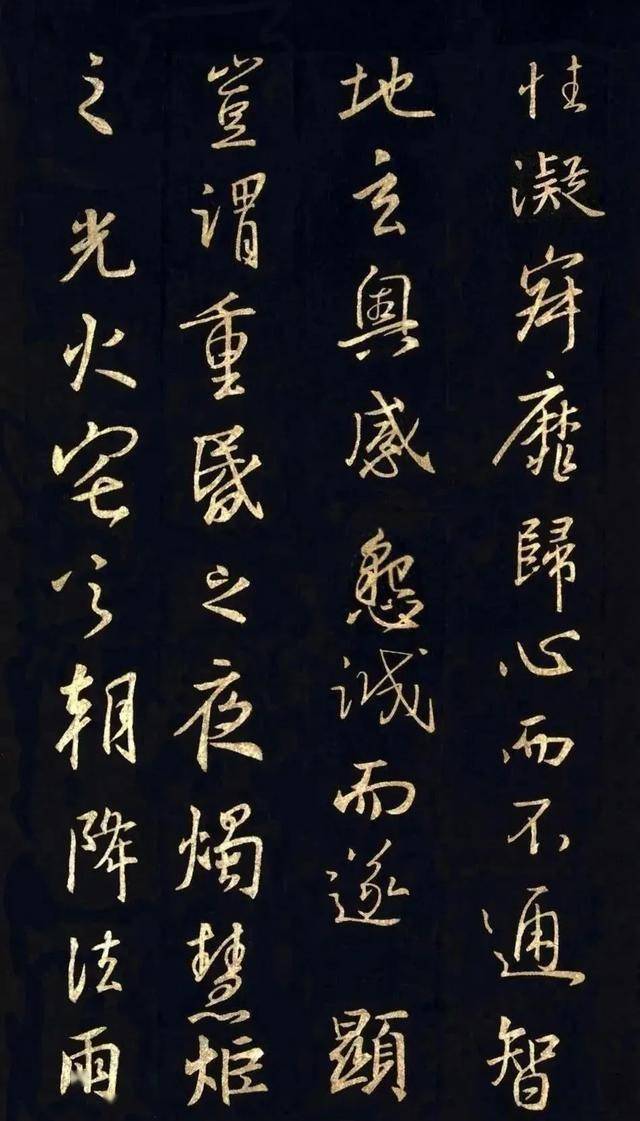 性凝寂靡歸心而不通智
地玄奧感懇誠而遂顯
豈謂重昬之夜燭慧炬
之光火宅之朝降法雨